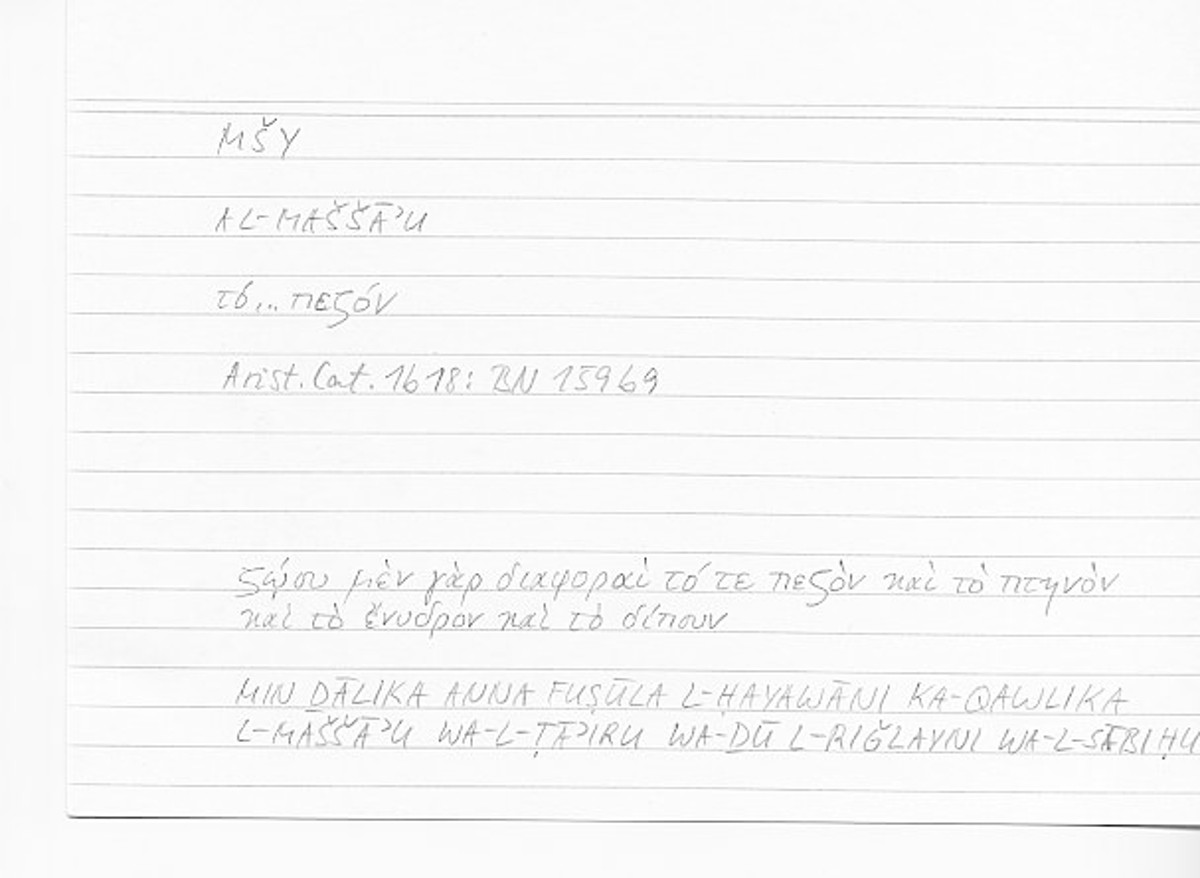 MŠY
AL-MAŠŠĀʾU
τό... πεζόν
Arist. Cat. 1618: BN 15969
ζῴου μὲν γὰρ διαφοραὶ τό τε πεζὸν καὶ τὸ πτηνὸν
καὶ τὸ ἔνυδρον καὶ τὸ δίπουν
MIN ḎĀLIKA ANNA FUṢŪLA L-ḤAYAWĀNI KA-QAWLIKA
L-MAŠŠĀʾU WA-L-ṬĀʾIRU WA-ḎŪ L-RIǦLAYNI WA-L-SĀBIḤU